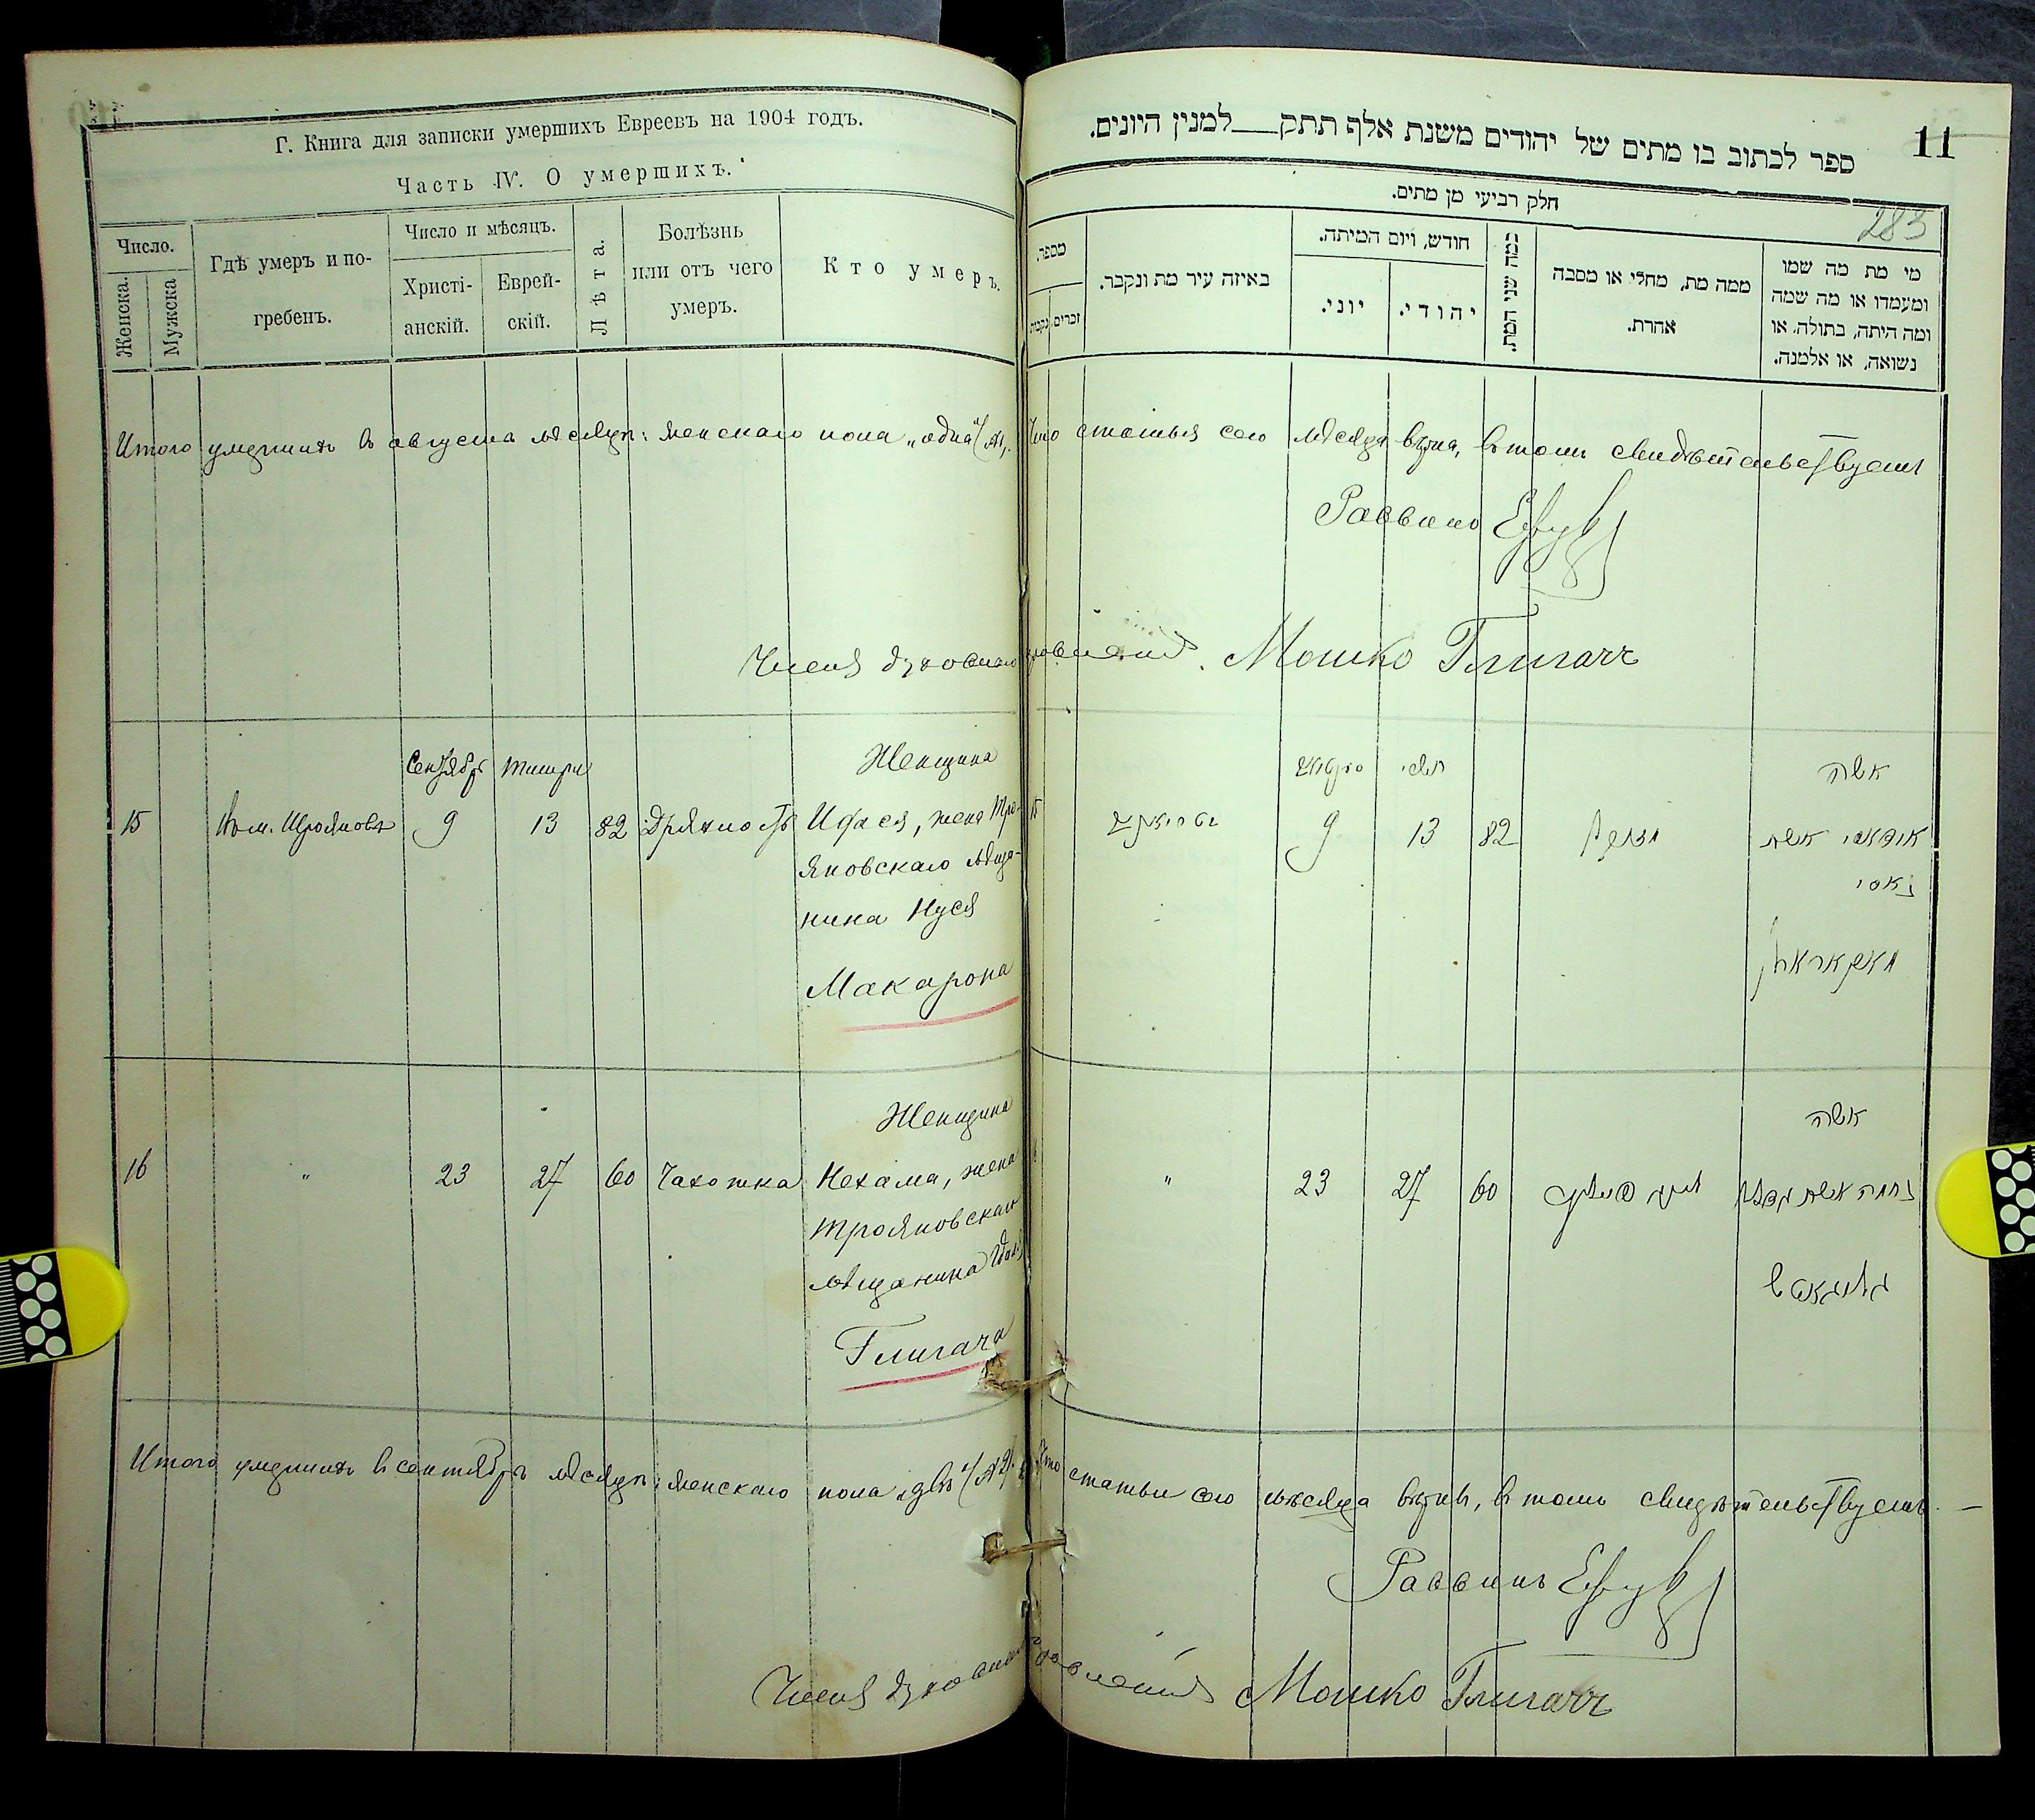 Г. Книга для записки умершихъ Евреевъ на 1904 годъ.
Часть IV. О умершихъ.
Число.
Женска.
Мужска
Гдѣ умеръ и по-
гребенъ.
Число и мѣсяцъ.
Христі-
анскій.
Еврей-
скій.
Лѣта.
Болѣзнь
или отъ чего
умеръ.
Кто умеръ.
11
ספר לכתוב בו מתים של יהודים משנת אלף תתק למנין היונים.
283
חלק רביעי מן מתים.
מספר.
זכרים.
נקבות
באיזה עיר מת ונקבר.
חודש, ויום המיתה.
יוני.
יהודי.
כמה שני המת.
ממה מת, מחלי או מסבה
אחרת.
מי מת מה שמו
ומעמדו או מה שמה
ומה היתה, בתולה, או
נשואה, או אלמנה.
Итого умершихъ въ августѣ мѣсяцѣ: женскаго пола „одна"
Что статья сего мѣсяца вѣрна, въ томъ свидѣтельствуемъ
Раввинъ
Членъ духовнаго правленія Мошко Глигачъ
Сентябрь Тишри Женщина
15 Въ м. Трояновѣ 9 13 82 Дряхлость
жена Тро-
яновскаго мѣща-
нина Нуся
Макарона
תשרי
אשה
15 9 13 82
אשת
מאקאראן
Женщина
16 " 23 27 60 Чахотка Нехама, жена
Трояновскаго
мѣщанина
Глигача
אשה
" 23 27 60
נחמה אשת
Итого умершихъ въ сентябрѣ мѣсяцѣ: женскаго пола „двѣ"
Что статьи сего мѣсяца вѣрны, въ томъ свидѣтельствуемъ. —
Раввинъ
Членъ духовнаго правленія Мошко Глигачъ